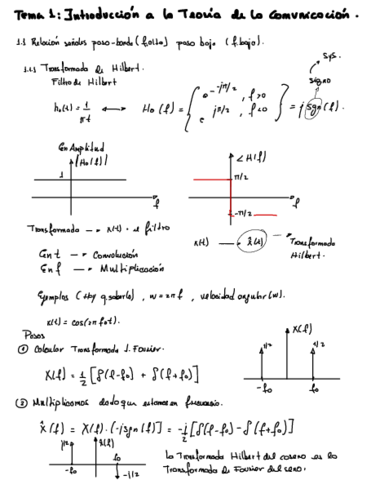 Tema 1: Introducción a la Teoría de la Comunicación.
1.1 Relación señales paso-banda (f alto) paso bajo (f. bajo).
1.1.1 Transformada de Hilbert.
Filtro de Hilbert
sgs.
signo
h₀(t) = 1/πt ⟷ H₀(f) = { e^{-jπ/2}, f>0 ; e^{jπ/2}, f<0 } = j sgn(f).
En Amplitud
|H₀(f)|
∠H(f)
1
π/2
f
f
-π/2
Transformada → x(t) * el filtro
x(t) → x̂(t) → Transformada Hilbert.
En t → Convolución
En f → Multiplicación
Ejemplos (Hay q saber(lo), w = 2πf, velocidad angular (w).
x(t) = cos(2πf₀t).
Pasos
① Calcular Transformada d. Fourier.
X(f)
1/2
1/2
-f₀
f₀
X(f) = 1/2 [δ(f-f₀) + δ(f+f₀)]
② Multiplicamos dado que estamos en frecuencia.
X̂(f) = X(f) · (-j sgn(f)) = -j/2 [δ(f-f₀) - δ(f+f₀)]
j/2
X̂(f)
-f₀
f₀
-j/2
La Transformada Hilbert del coseno es la
Transformada de Fourier del seno.